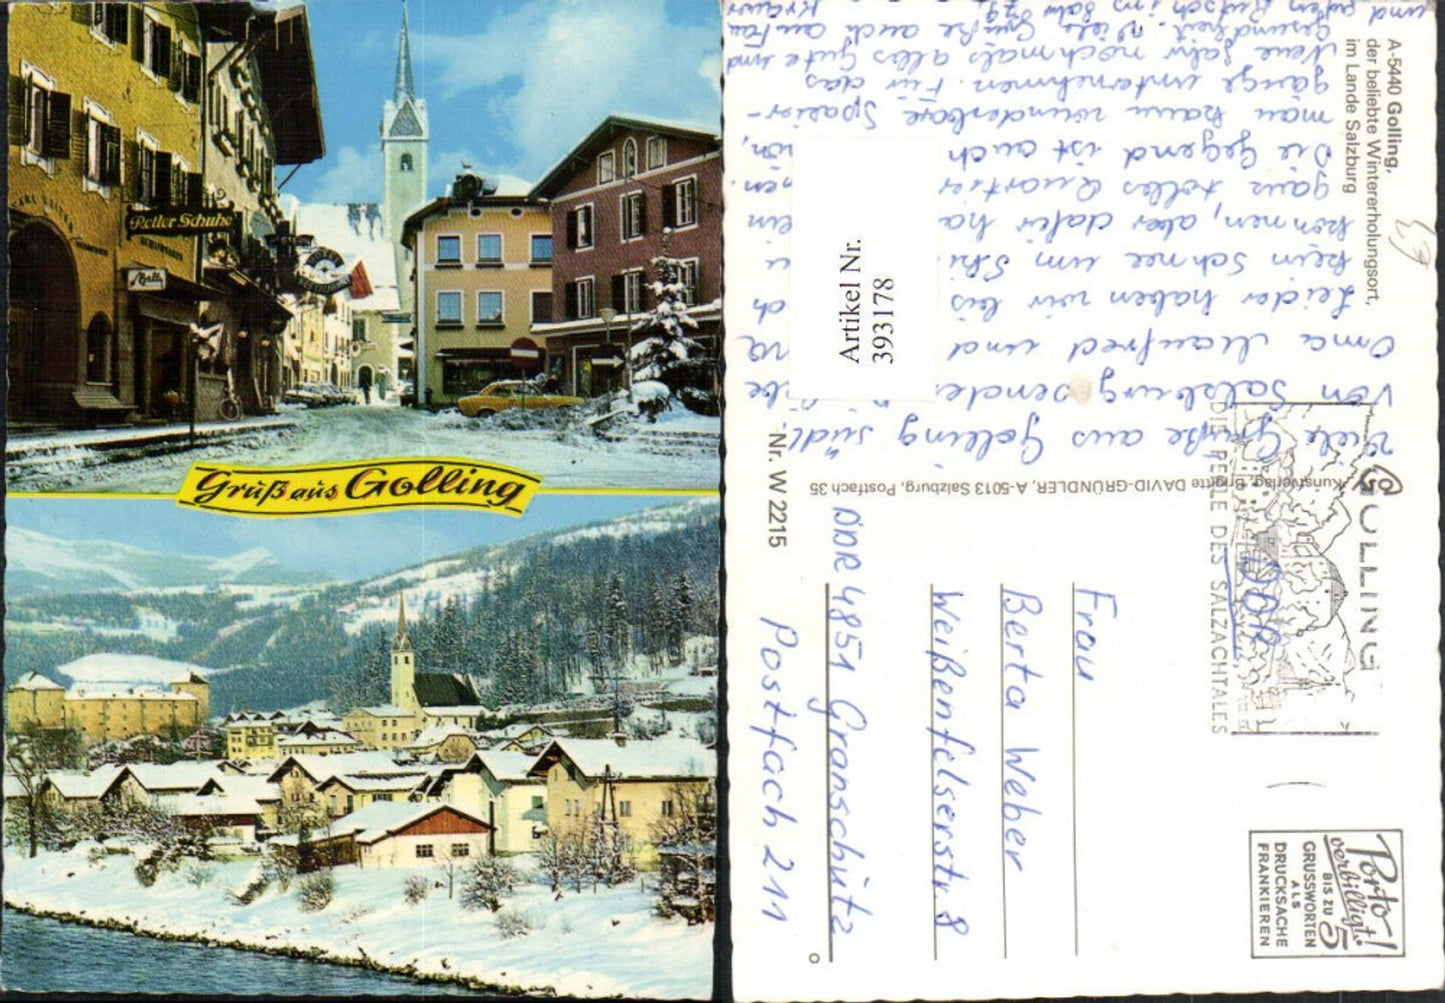 Roller Schuhe
Gruß aus Golling
A-5440 Golling,
der beliebte Wintererholungsort,
im Lande Salzburg
Viele Grüße aus Golling südl.
von Salzburg senden
Oma Manfred und
Leider haben wir bis
kein Schnee um Ski
können, aber dafür ha
ein ganz tolles Quartier
Die Gegend ist auch
man kann wunderbare Spazier-
gänge unternehmen. Für das
Neue Jahr nochmals alles Gute und
Gesundheit. Viele Grüße auch an Fam
und guten Rutsch ins Jahr 879
Artikel Nr.
393178
Nr. W 2215
Kunstverlag, Brigitte DAVID-GRÜNDLER, A-5013 Salzburg, Postfach 35
GOLLING
DIE PERLE DES SALZACHTALES
DDR
Frau
Berta Weber
Weißenfelserstr. 8
DDR 4851 Granschütz
Postfach 211
Porto!
verbilligt
BIS ZU 5
GRUSSWORTEN
ALS
DRUCKSACHE
FRANKIEREN